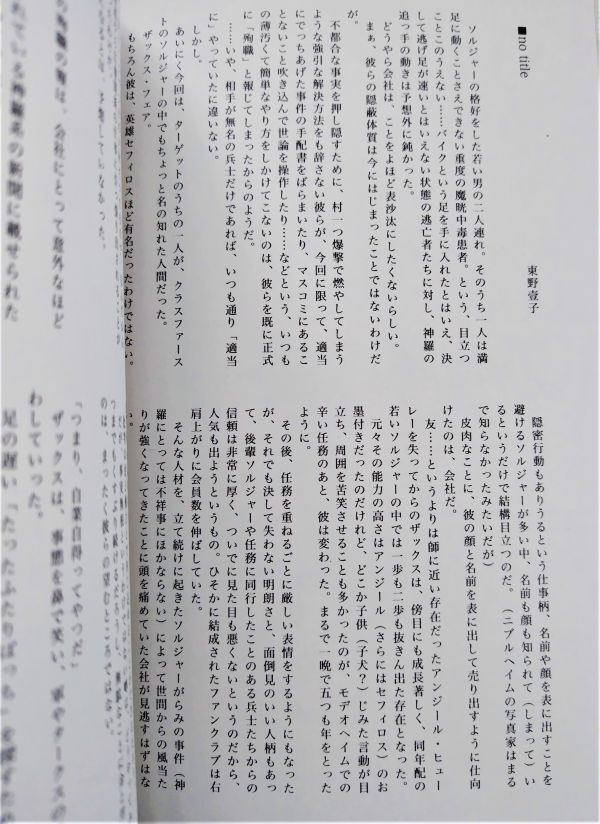 ■no title
東野壹子
ソルジャーの格好をした若い男の二人連れ。そのうち一人は満
足に動くことさえできない重度の魔晄中毒患者。という、目立つ
ことこのうえない……バイクという足を手に入れたとはいえ、決
して逃げ足が速いとはいえない状態の逃亡者たちに対し、神羅の
追っ手の動きは予想外に鈍かった。
どうやら会社は、ことをよほど表沙汰にしたくないらしい。
まぁ、彼らの隠蔽体質は今にはじまったことではないわけだ
が。
不都合な事実を押し隠すために、村一つ爆撃で燃やしてしまう
ような強引な解決方法をも辞さない彼らが、今回に限って、適当
にでっちあげた事件の手配書をばらまいたり、マスコミにあるこ
とないこと吹き込んで世論を操作したり……などという、いつも
の薄汚くて簡単なやり方をしかけてこないのは、彼らを既に正式
に「殉職」と報じてしまったからのようだ。
……いや、相手が無名の兵士だけであれば、いつも通り「適当
に」やっていたに違いない。
しかし。
あいにく今回は、ターゲットのうちの一人が、クラスファース
トのソルジャーの中でもちょっと名の知れた人間だった。
ザックス・フェア。
もちろん彼は、英雄セフィロスほど有名だったわけではない。
隠密行動もありうるという仕事柄、名前や顔を表に出すことを
避けるソルジャーが多い中、名前も顔も知られて（しまって）い
るというだけで結構目立つのだ。（ニブルヘイムの写真家はまる
で知らなかったみたいだが）
皮肉なことに、彼の顔と名前を表に出して売り出すように仕向
けたのは、会社だ。
友……というよりは師に近い存在だったアンジール・ヒュー
レーを失ってからのザックスは、傍目にも成長著しく、同年配の
若いソルジャーの中では一歩も二歩も抜きん出た存在となった。
元々その能力の高さはアンジール（さらにはセフィロス）のお
墨付きだったのだけれど、どこか子供（子犬？）じみた言動が目
立ち、周囲を苦笑させることも多かったのが、モデオヘイムでの
辛い任務のあと、彼は変わった。まるで一晩で五つも年をとった
ように。
その後、任務を重ねるごとに厳しい表情をするようにもなった
が、それでも決して失わない明朗さと、面倒見のいい人柄もあっ
て、後輩ソルジャーや任務に同行したことのある兵士たちからの
信頼は非常に厚く、ついでに見た目も悪くないというのだから、
人気も出ようというもの。ひそかに結成されたファンクラブは右
肩上がりに会員数を伸ばしていた。
そんな人材を、立て続けに起きたソルジャーがらみの事件（神
羅にとっては不祥事にほかならない）によって世間からの風当た
りが強くなってきたことに頭を痛めていた会社が見逃すはずはな
い。
会社にとって意外なほど
の新聞に載せられた
「つまり、自業自得ってやつだ」
ザックスは、事態を鼻で笑い、
わしていった。